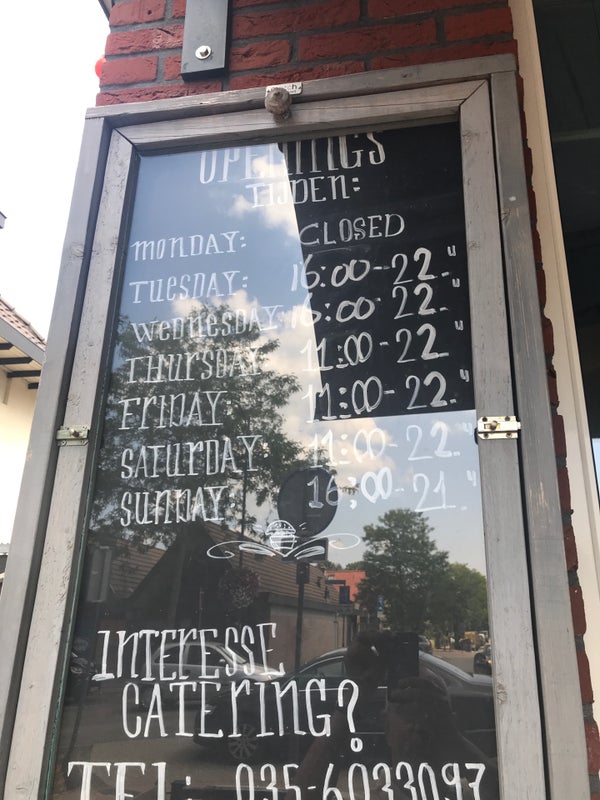 OPENINGS
TIJDEN:
MONDAY: CLOSED
TUESDAY: 16:00-22.u
WEDNESDAY: 16:00-22.u
THURSDAY: 11:00-22.u
FRIDAY: 11:00-22.u
SATURDAY: 11:00-22.u
SUNDAY: 16:00-21.u
INTERESSE
CATERING?
TEL: 035-6033097